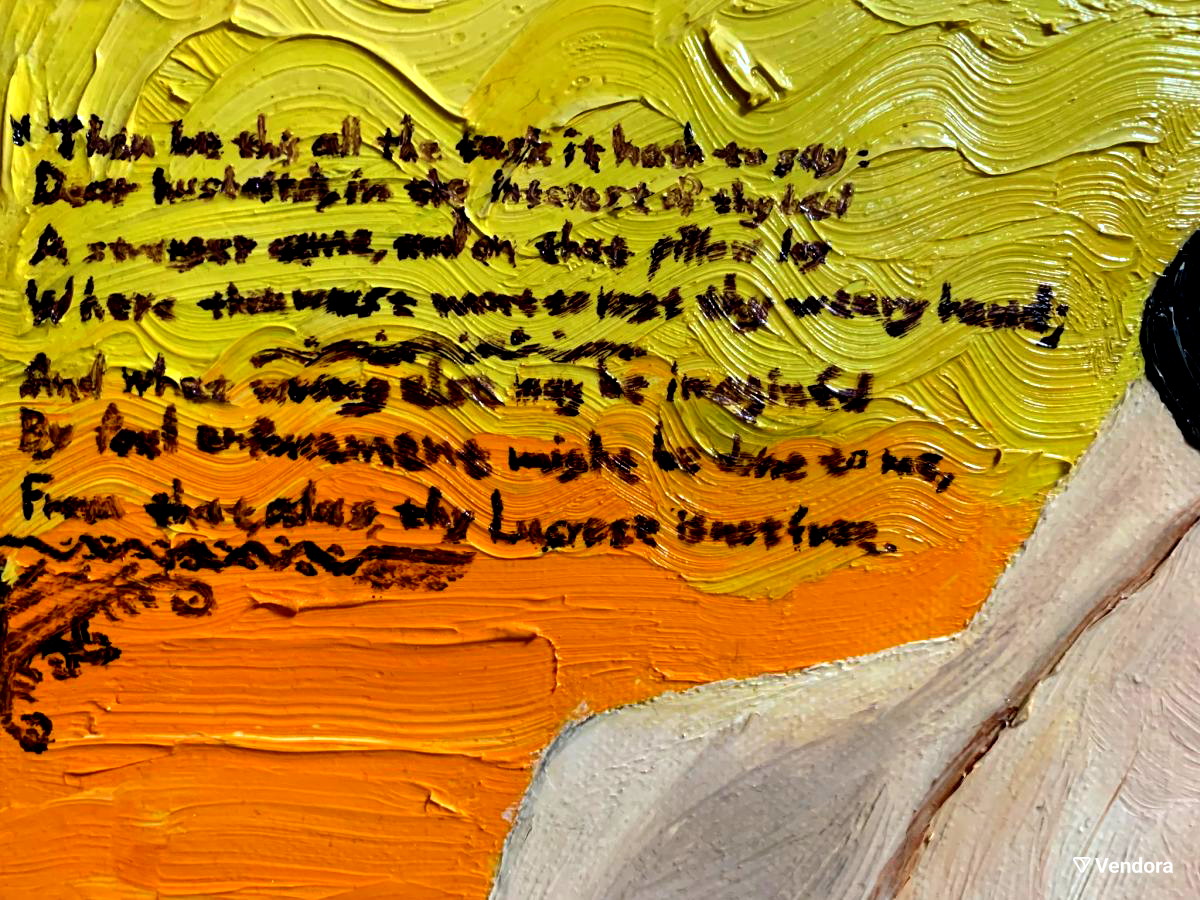 "Then be thy all the task it hath to say:
Dear husband, in the interest of thy bed
A stranger came, and on that pillow lay
Where thou wast wont to rest thy weary head;
And what wrong else may be imagined
By foul enforcement might be done to me,
From that, alas thy Lucrece is not free.
Vendora